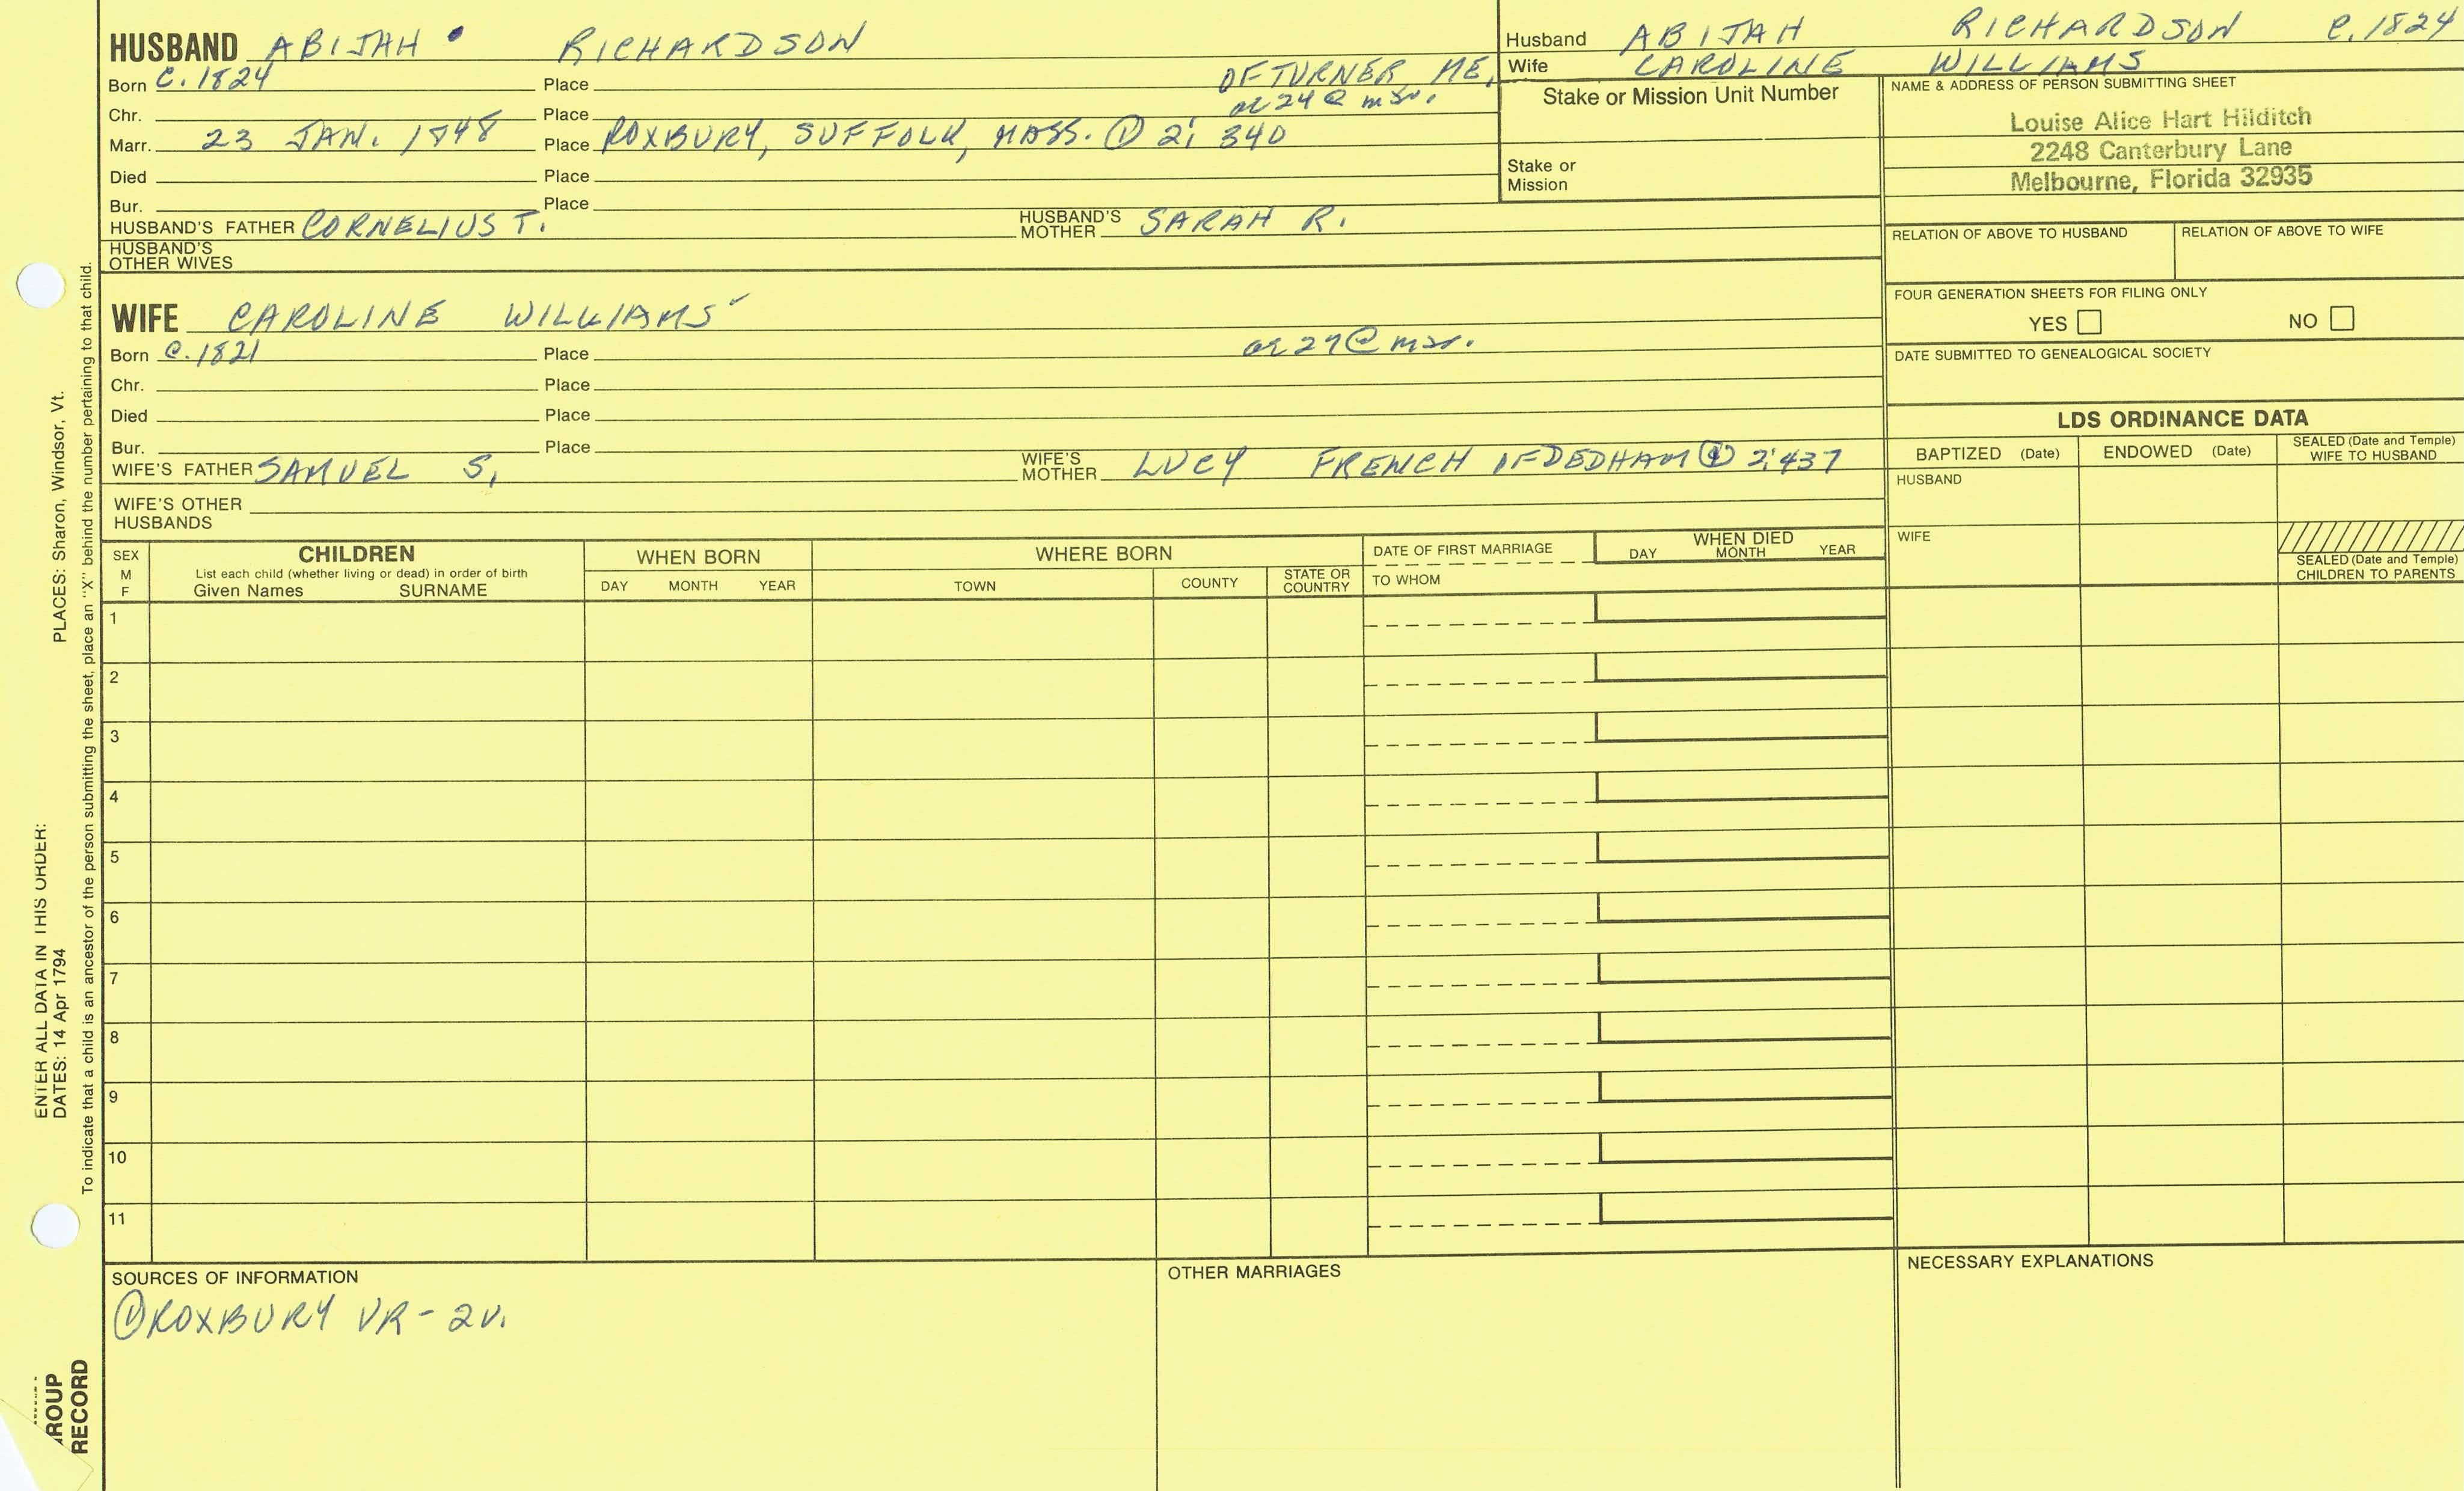 HUSBAND ABIJAH RICHARDSON
Born c. 1824 Place OF TURNER ME,
Chr. Place ae 24 @ mar.
Marr. 23 JAN. 1848 Place ROXBURY, SUFFOLK, MASS. ① 2; 340
Died Place
Bur. Place
HUSBAND'S FATHER CORNELIUS T. HUSBAND'S MOTHER SARAH R.
HUSBAND'S OTHER WIVES
WIFE CAROLINE WILLIAMS
Born c. 1821 Place ae 27 @ mar.
Chr. Place
Died Place
Bur. Place
WIFE'S FATHER SAMUEL S. WIFE'S MOTHER LUCY FRENCH OF DEDHAM ① 2;437
WIFE'S OTHER HUSBANDS
Husband ABIJAH RICHARDSON c. 1824
Wife CAROLINE WILLIAMS
Stake or Mission Unit Number
Stake or Mission
NAME & ADDRESS OF PERSON SUBMITTING SHEET
Louise Alice Hart Hilditch
2248 Canterbury Lane
Melbourne, Florida 32935
RELATION OF ABOVE TO HUSBAND RELATION OF ABOVE TO WIFE
FOUR GENERATION SHEETS FOR FILING ONLY
YES NO
DATE SUBMITTED TO GENEALOGICAL SOCIETY
LDS ORDINANCE DATA
BAPTIZED (Date) ENDOWED (Date) SEALED (Date and Temple) WIFE TO HUSBAND
HUSBAND
WIFE
SEALED (Date and Temple) CHILDREN TO PARENTS
SEX M F
CHILDREN
List each child (whether living or dead) in order of birth
Given Names SURNAME
WHEN BORN
DAY MONTH YEAR
WHERE BORN
TOWN COUNTY STATE OR COUNTRY
DATE OF FIRST MARRIAGE
TO WHOM
WHEN DIED
DAY MONTH YEAR
1
2
3
4
5
6
7
8
9
10
11
SOURCES OF INFORMATION
① ROXBURY VR - 2v.
OTHER MARRIAGES
NECESSARY EXPLANATIONS
ENTER ALL DATA IN THIS ORDER:
DATES: 14 Apr 1794 PLACES: Sharon, Windsor, Vt.
To indicate that a child is an ancestor of the person submitting the sheet, place an "X" behind the number pertaining to that child.
RECORD